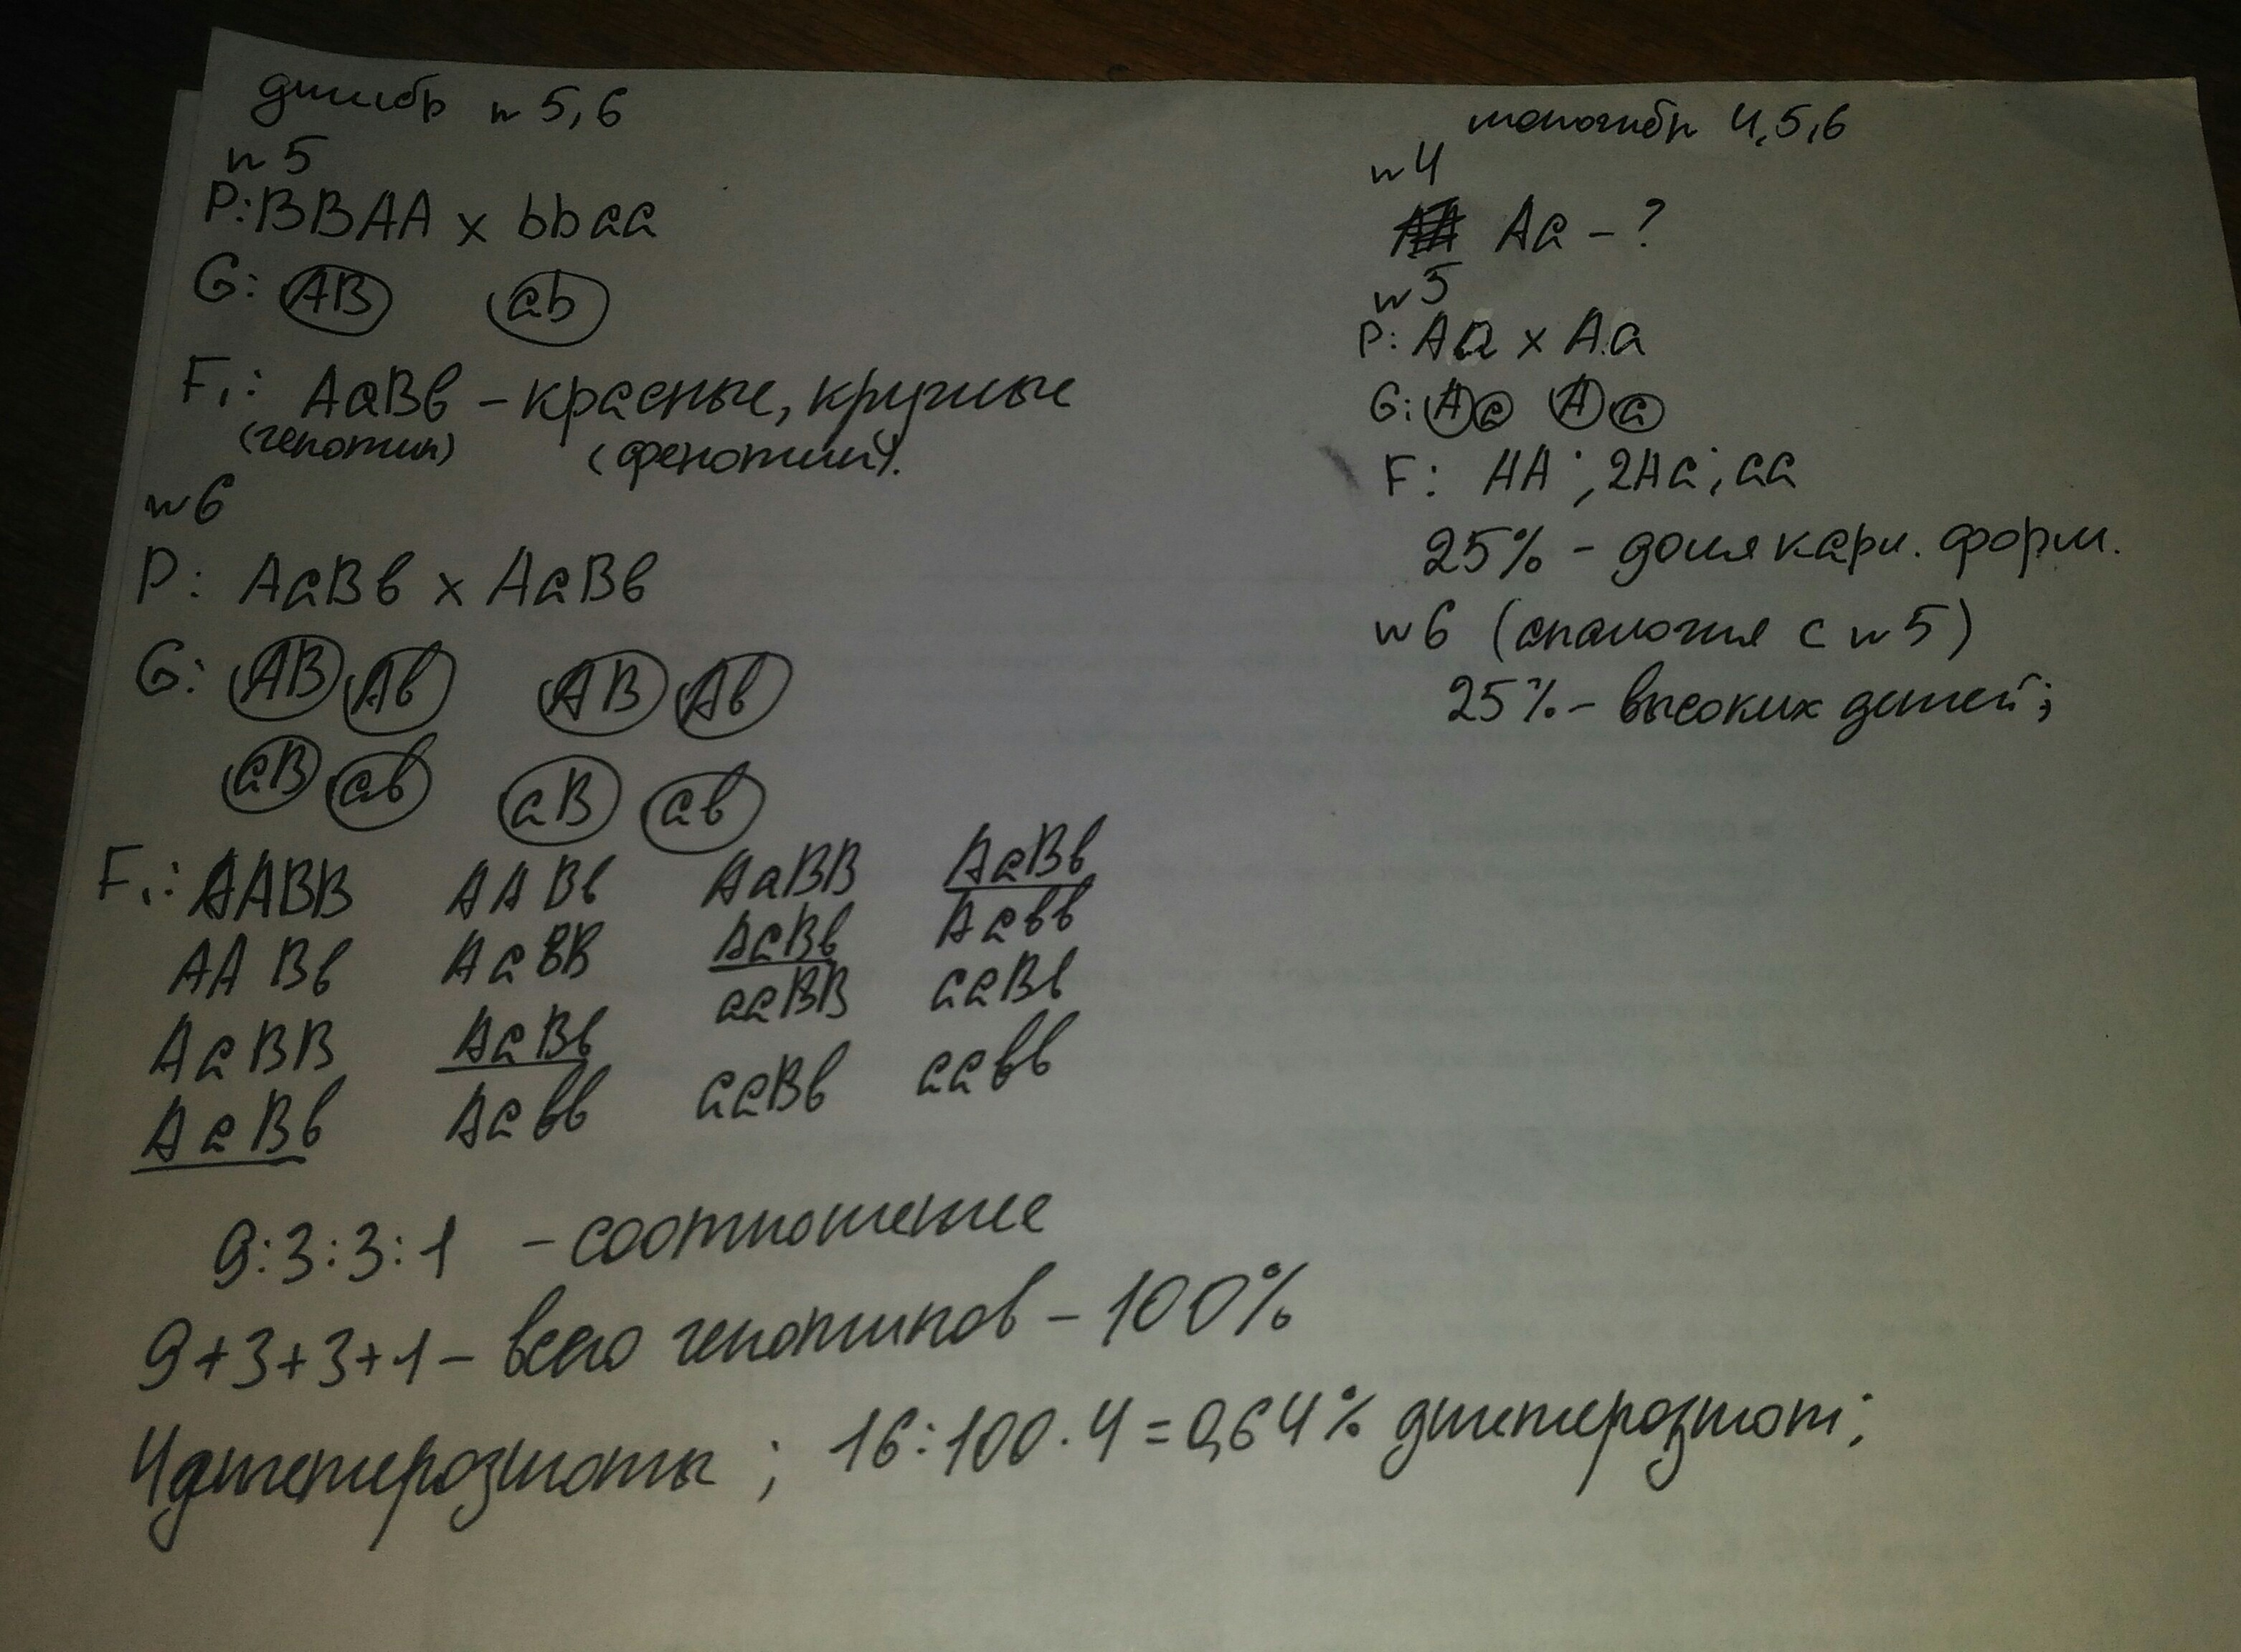 дигибр n 5,6
n 5
P: BBAA x bbaa
G: AB ab
F₁: AaBb – красные, круглые
(генотип) (фенотип).
n6
P: AaBв x AaBв
G: AB Aв AB Aв
aB aв aB aв
F₁: AABB AABв AaBB AaBв
AABв AaBB AaBв Aaвв
AaBB AaBв aaBB aaBв
AaBв Aaвв aaBв aaвв
9:3:3:1 – соотношение
9+3+3+1 – всего генотипов – 100%
4 дигетерозиготы ; 16:100·4=0,64% дигетерозигот;
моногибр 4,5,6
n4
Aa – ?
n5
P: Aa x Aa
G: A a A a
F: AA ; 2Aa ; aa
25% – доля карл. форм.
n6 (аналогия с n5)
25% – высоких детей;